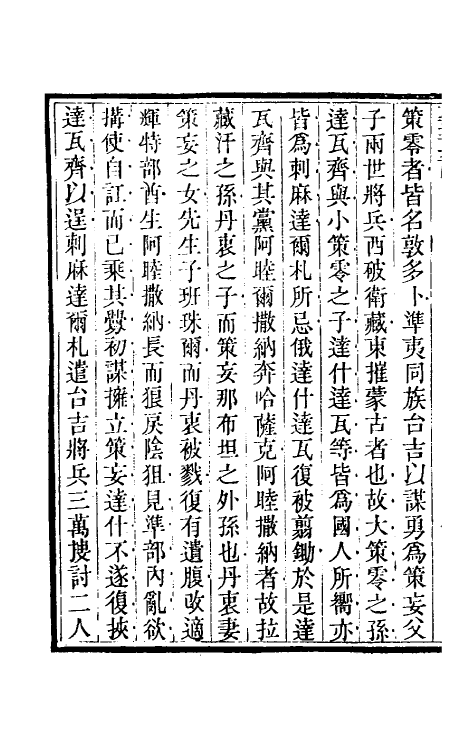 策零者皆名敦多卜準夷同族台吉以謀勇爲策妄父
子兩世將兵西破衛藏東摧蒙古者也故大策零之孫
達瓦齊與小策零之子達什達瓦等皆爲國人所嚮亦
皆爲刺麻達爾札所忌俄達什達瓦復被翦鋤於是達
瓦齊與其黨阿睦爾撒納奔哈薩克阿睦撒納者故拉
藏汗之孫丹衷之子而策妄那布坦之外孫也丹衷妻
策妄之女先生子班珠爾而丹衷被戮復有遺腹改適
輝特部酋生阿睦撒納長而狠戾陰狙見準部內亂欲
搆使自訌而已乘其釁初謀擁立策妄達什不遂復挾
達瓦齊以逞刺麻達爾札遣台吉將兵三萬搜討二人